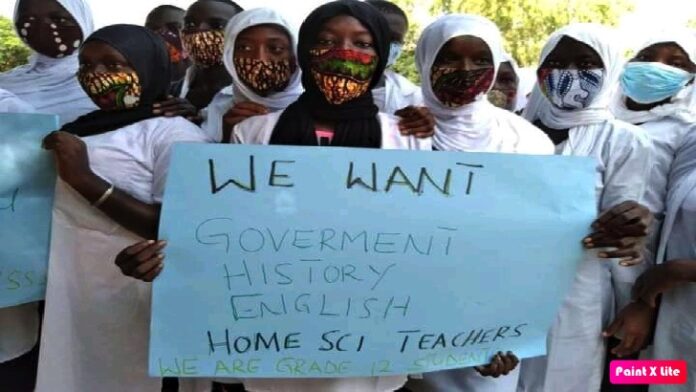 WE WANT
GOVERMENT
HISTORY
ENGLISH
HOME SCI TEACHERS
WE ARE GRADE 12 STUDENT
Paint X lite